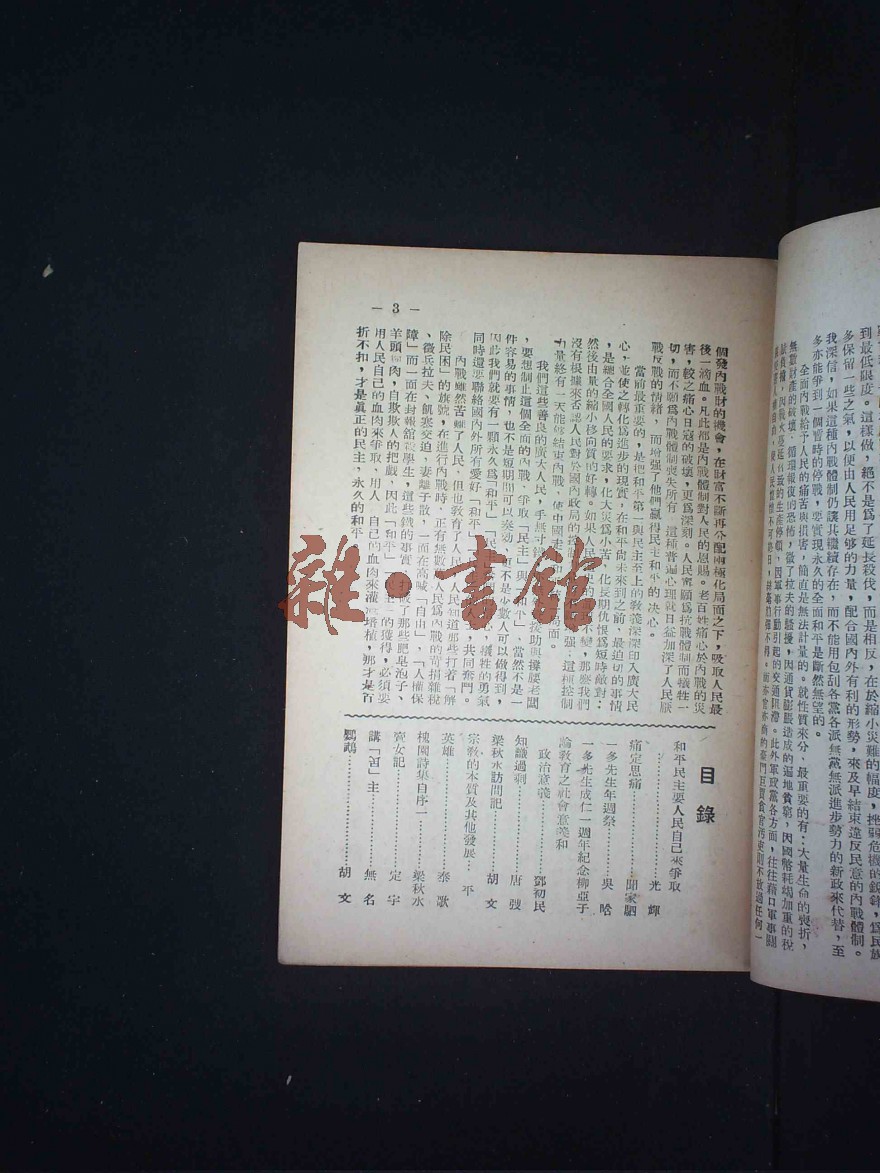 到最低限度。這樣做，絕不是爲了延長殺伐，而是相反，在於縮小災難的幅度，挫弱危機的銳鋒，爲民族
多保留一些之氣，以便由人民用足够的力量，配合國內外有利的形勢，來及早結束違反民意的內戰體制。
我深信，如果這種內戰體制仍讓其繼續存在，而不能用包刮各黨各派無黨無派進步勢力的新政來代替，至
多亦能爭到一個暫時的停戰，要實現永久的全面和平是斷然無望的。
全面內戰給予人民的痛苦與損害，簡直是無法計量的。就性質來分、最重要的有：大量生命的喪折，
無數財產的破壞、循環報復的恐怖，徵丁拉夫的騷擾，因通貨膨脹造成的逼地貧窮，因國幣耗竭加重的稅
個發內戰財的機會，在財富不斷再分配兩極化局面之下，吸取人民最
後一滴血。凡此都是內戰體制對人民的恩賜。老百姓痛心於內戰的災
害，較之痛心日寇的破壞，更爲深刻。人民甯願爲抗戰體制而犧牲一
切，而不願爲內戰體制喪失所有，這種普遍心理就日益加深了人民厭
戰反戰的情緒，而增強了他們贏得民主和平的決心。
當前最重要的，是把和平第一與民主至上的教義深深印入廣大民
心，並使之轉化爲進步的現實，在和平尚未來到之前，最迫切的事情
，是總合全國人民的要求，化大災爲小苦，化長期仇恨爲短時敵對；
然後由量的縮小移向質的好轉。如果人民
不變，那麼我們
沒有根據來否認人民對於國內政局的控制
強；這種控制
力量終有一天能够結束內戰，使中國
局面。
我們這些善良的廣大人民，手無寸
援助與撐腰老闆
，要想制止這個全面的內戰、爭取「民主」與「和平」，當然不是一
件容易的事情，也不是短期間可以奏効、更不是少數人可以做得到，
因此我們就要有一顆永久爲「和平」「民
犧牲的勇氣
同時還要聯絡國內外所有愛好「和平」
共同奮鬥。
內戰雖然苦難了人民，但也教育了人民
人民知道那些打着「解
除民困」的旗號，在進行內戰時，正有無數
人民爲內戰的苛捐雜稅
、徵兵拉夫、飢寒交迫，妻離子散，一面在高喊「自由」，「人權保
障」而一面在封報舘殺學生，這些鐵的事實
破了那些肥皂泡子、
羊頭狗肉，自欺欺人的把戲，因此「和平」
的獲得，必須要
用人民自己的血肉來爭取、用人
自己的血肉來灌
培植，那才是百
折不扣，才是眞正的民主，永久的和平
— 3 —
目錄
和平民主要人民自己來爭取
………光輝
痛定思痛………聞家駟
一多先生年週祭………吳晗
一多先生成仁一週年紀念柳亞子
論敎育之社會意義和
政治意義………鄧初民
知識過剩………唐弢
梁秋水訪問記………胡文
宗敎的本質及其他發展…平
英雄………泰歌
槐園詩集自序一………梁秋水
齊女記………定宇
講「民」主………無名
鸚鵡………胡文
雜·書館